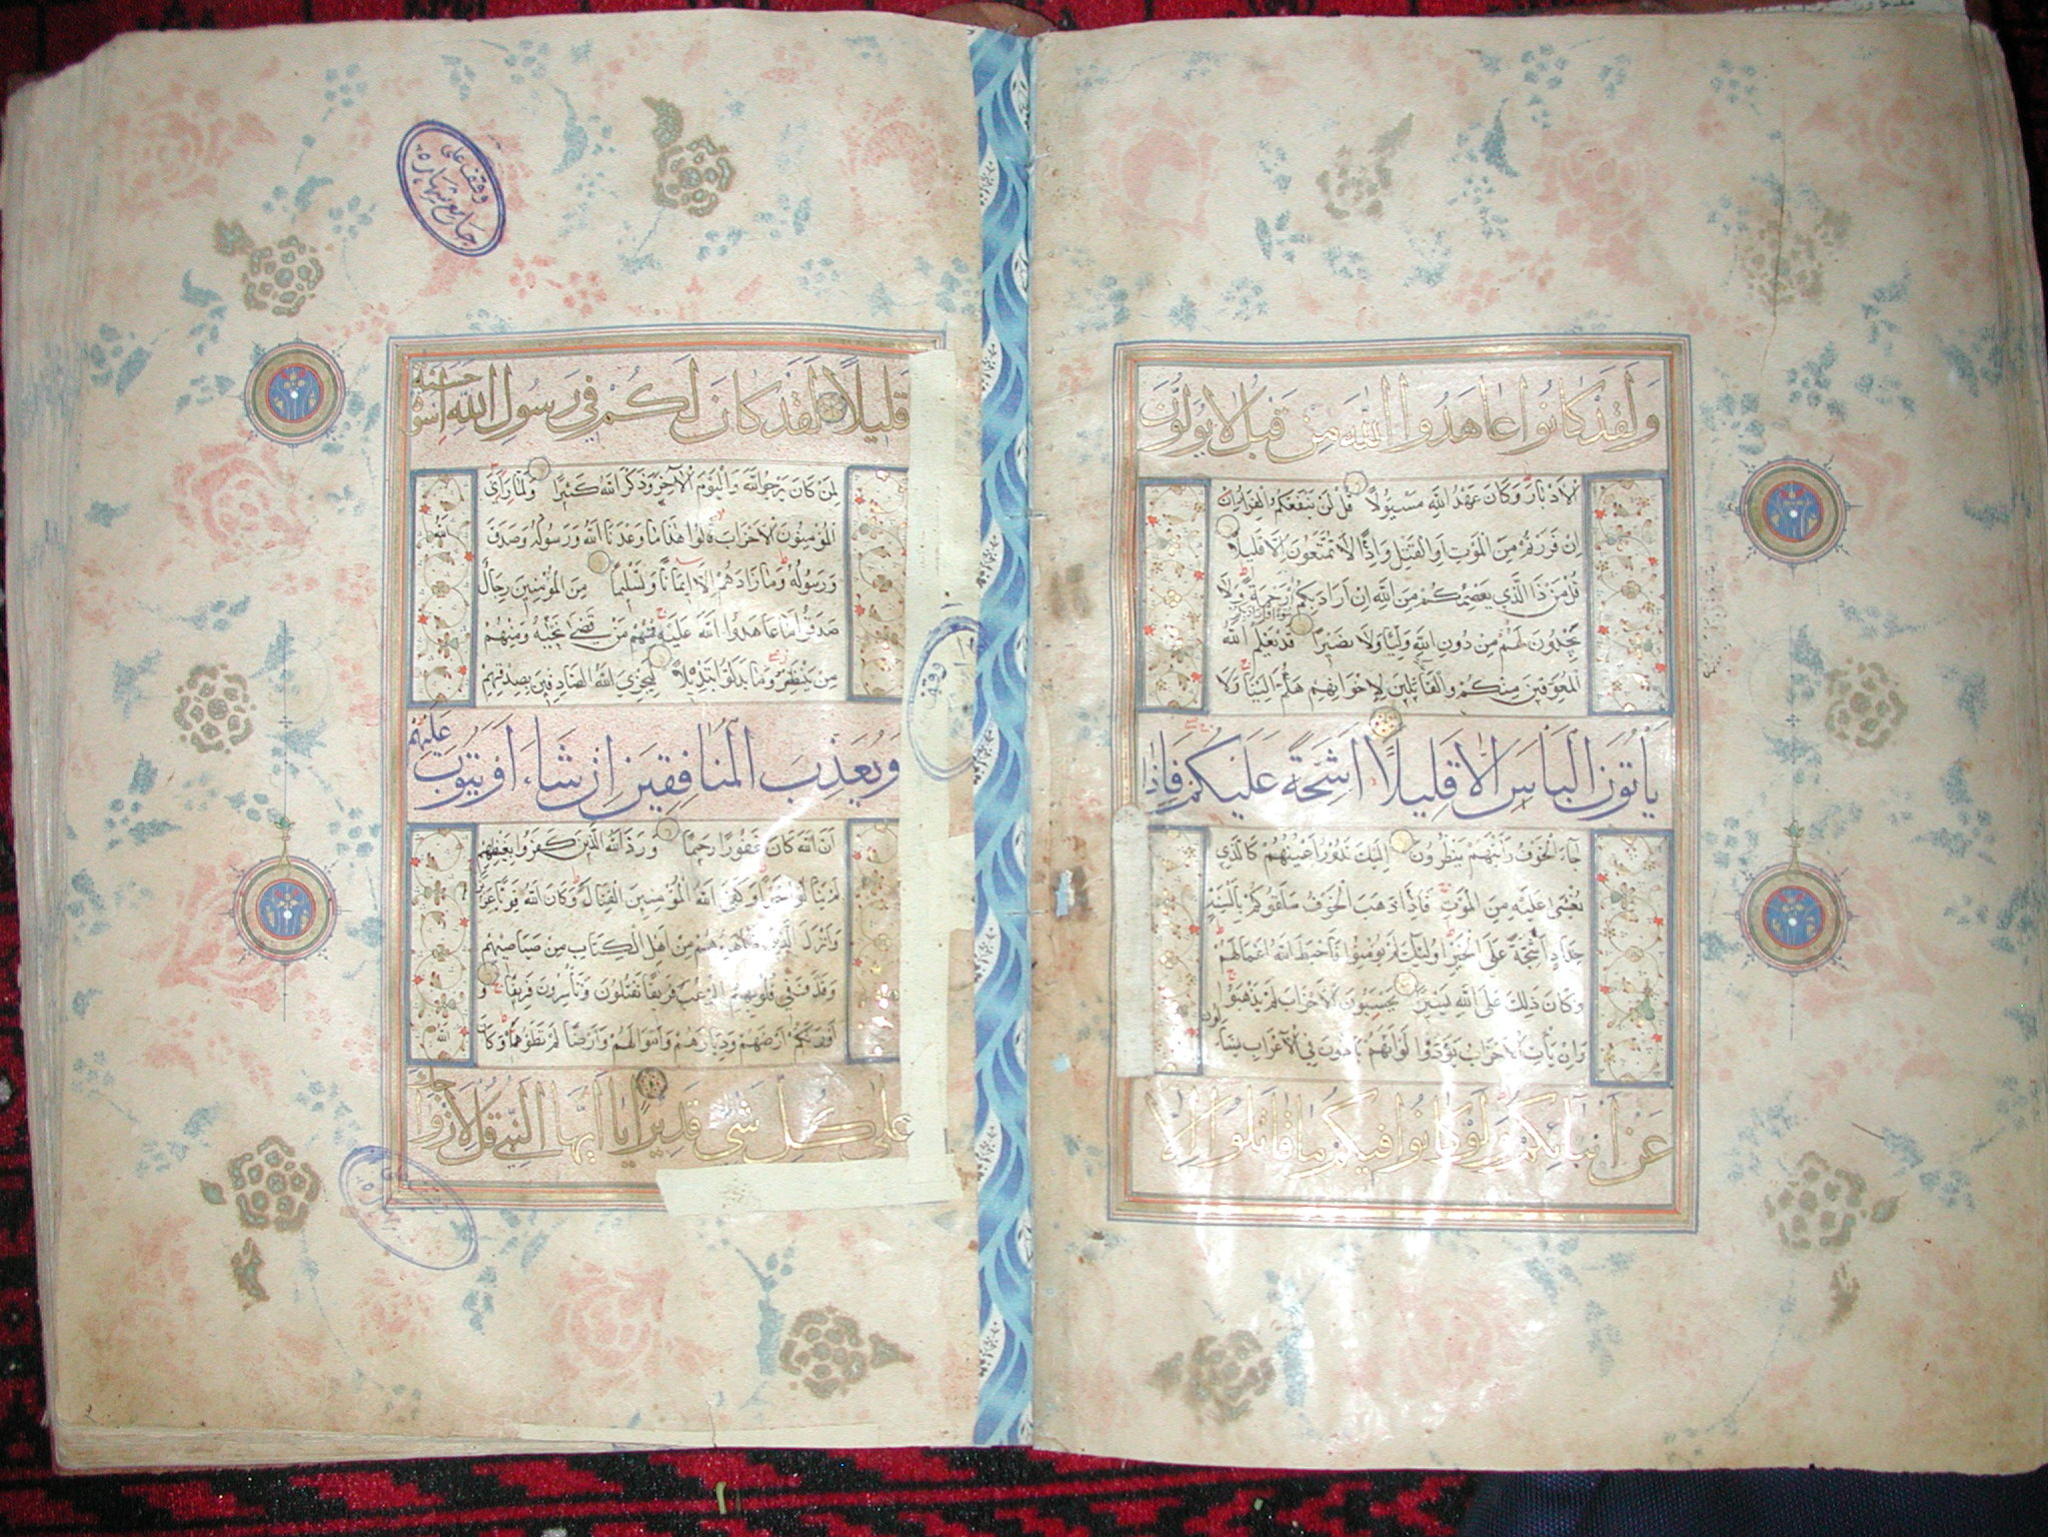 وَلَقَدْ كَانُوا عَاهَدُوا اللَّهَ مِنْ قَبْلُ لَا يُوَلُّونَ
الْأَدْبَارَ وَكَانَ عَهْدُ اللَّهِ مَسْئُولًا قُلْ لَنْ يَنْفَعَكُمُ الْفِرَارُ اِنْ
اِنْ فَرَرْتُمْ مِنَ الْمَوْتِ اَوِ الْقَتْلِ وَاِذًا لَا تُمَتَّعُونَ اِلَّا قَلِيلًا
قُلْ مَنْ ذَا الَّذِي يَعْصِمُكُمْ مِنَ اللَّهِ اِنْ اَرَادَ بِكُمْ رَحْمَةً وَلَا
سُوءًا اَوْ اَرَادَ بِكُمْ
يَجِدُونَ لَهُمْ مِنْ دُونِ اللَّهِ وَلِيًّا وَلَا نَصِيرًا قَدْ يَعْلَمُ اللَّهُ
الْمُعَوِّقِينَ مِنْكُمْ وَالْقَائِلِينَ لِاِخْوَانِهِمْ هَلُمَّ اِلَيْنَا وَلَا
يَأْتُونَ الْبَأْسَ اِلَّا قَلِيلًا اَشِحَّةً عَلَيْكُمْ فَاِذَا
جَاءَ الْخَوْفُ رَاَيْتَهُمْ يَنْظُرُونَ اِلَيْكَ تَدُورُ اَعْيُنُهُمْ كَالَّذِي
يُغْشَى عَلَيْهِ مِنَ الْمَوْتِ فَاِذَا ذَهَبَ الْخَوْفُ سَلَقُوكُمْ بِاَلْسِنَةٍ
حِدَادٍ اَشِحَّةً عَلَى الْخَيْرِ اُولَئِكَ لَمْ يُؤْمِنُوا فَاَحْبَطَ اللَّهُ اَعْمَالَهُمْ
وَكَانَ ذَلِكَ عَلَى اللَّهِ يَسِيرًا يَحْسَبُونَ الْاَحْزَابَ لَمْ يَذْهَبُوا
وَاِنْ يَأْتِ الْاَحْزَابُ يَوَدُّوا لَوْ اَنَّهُمْ بَادُونَ فِي الْاَعْرَابِ يَسْاَلُونَ
عَنْ اَنْبَائِكُمْ وَلَوْ كَانُوا فِيكُمْ مَا قَاتَلُوا اِلَّا
قَلِيلًا لَقَدْ كَانَ لَكُمْ فِي رَسُولِ اللَّهِ اُسْوَةٌ حَسَنَةٌ
لِمَنْ كَانَ يَرْجُو اللَّهَ وَالْيَوْمَ الْآخِرَ وَذَكَرَ اللَّهَ كَثِيرًا وَلَمَّا رَاَى
الْمُؤْمِنُونَ الْاَحْزَابَ قَالُوا هَذَا مَا وَعَدَنَا اللَّهُ وَرَسُولُهُ وَصَدَقَ
وَرَسُولُهُ وَمَا زَادَهُمْ اِلَّا اِيمَانًا وَتَسْلِيمًا مِنَ الْمُؤْمِنِينَ رِجَالٌ
صَدَقُوا مَا عَاهَدُوا اللَّهَ عَلَيْهِ فَمِنْهُمْ مَنْ قَضَى نَحْبَهُ وَمِنْهُمْ
مَنْ يَنْتَظِرُ وَمَا بَدَّلُوا تَبْدِيلًا لِيَجْزِيَ اللَّهُ الصَّادِقِينَ بِصِدْقِهِمْ
وَيُعَذِّبَ الْمُنَافِقِينَ اِنْ شَاءَ اَوْ يَتُوبَ عَلَيْهِمْ
اِنَّ اللَّهَ كَانَ غَفُورًا رَحِيمًا وَرَدَّ اللَّهُ الَّذِينَ كَفَرُوا بِغَيْظِهِمْ
لَمْ يَنَالُوا خَيْرًا وَكَفَى اللَّهُ الْمُؤْمِنِينَ الْقِتَالَ وَكَانَ اللَّهُ قَوِيًّا عَزِيزًا
وَاَنْزَلَ الَّذِينَ ظَاهَرُوهُمْ مِنْ اَهْلِ الْكِتَابِ مِنْ صَيَاصِيهِمْ
وَقَذَفَ فِي قُلُوبِهِمُ الرُّعْبَ فَرِيقًا تَقْتُلُونَ وَتَأْسِرُونَ فَرِيقًا وَ
اَوْرَثَكُمْ اَرْضَهُمْ وَدِيَارَهُمْ وَاَمْوَالَهُمْ وَاَرْضًا لَمْ تَطَئُوهَا وَكَانَ اللَّهُ
عَلَى كُلِّ شَيْءٍ قَدِيرًا يَا اَيُّهَا النَّبِيُّ قُلْ لِاَزْوَاجِكَ
وقف على
جامع شهاره
وقف